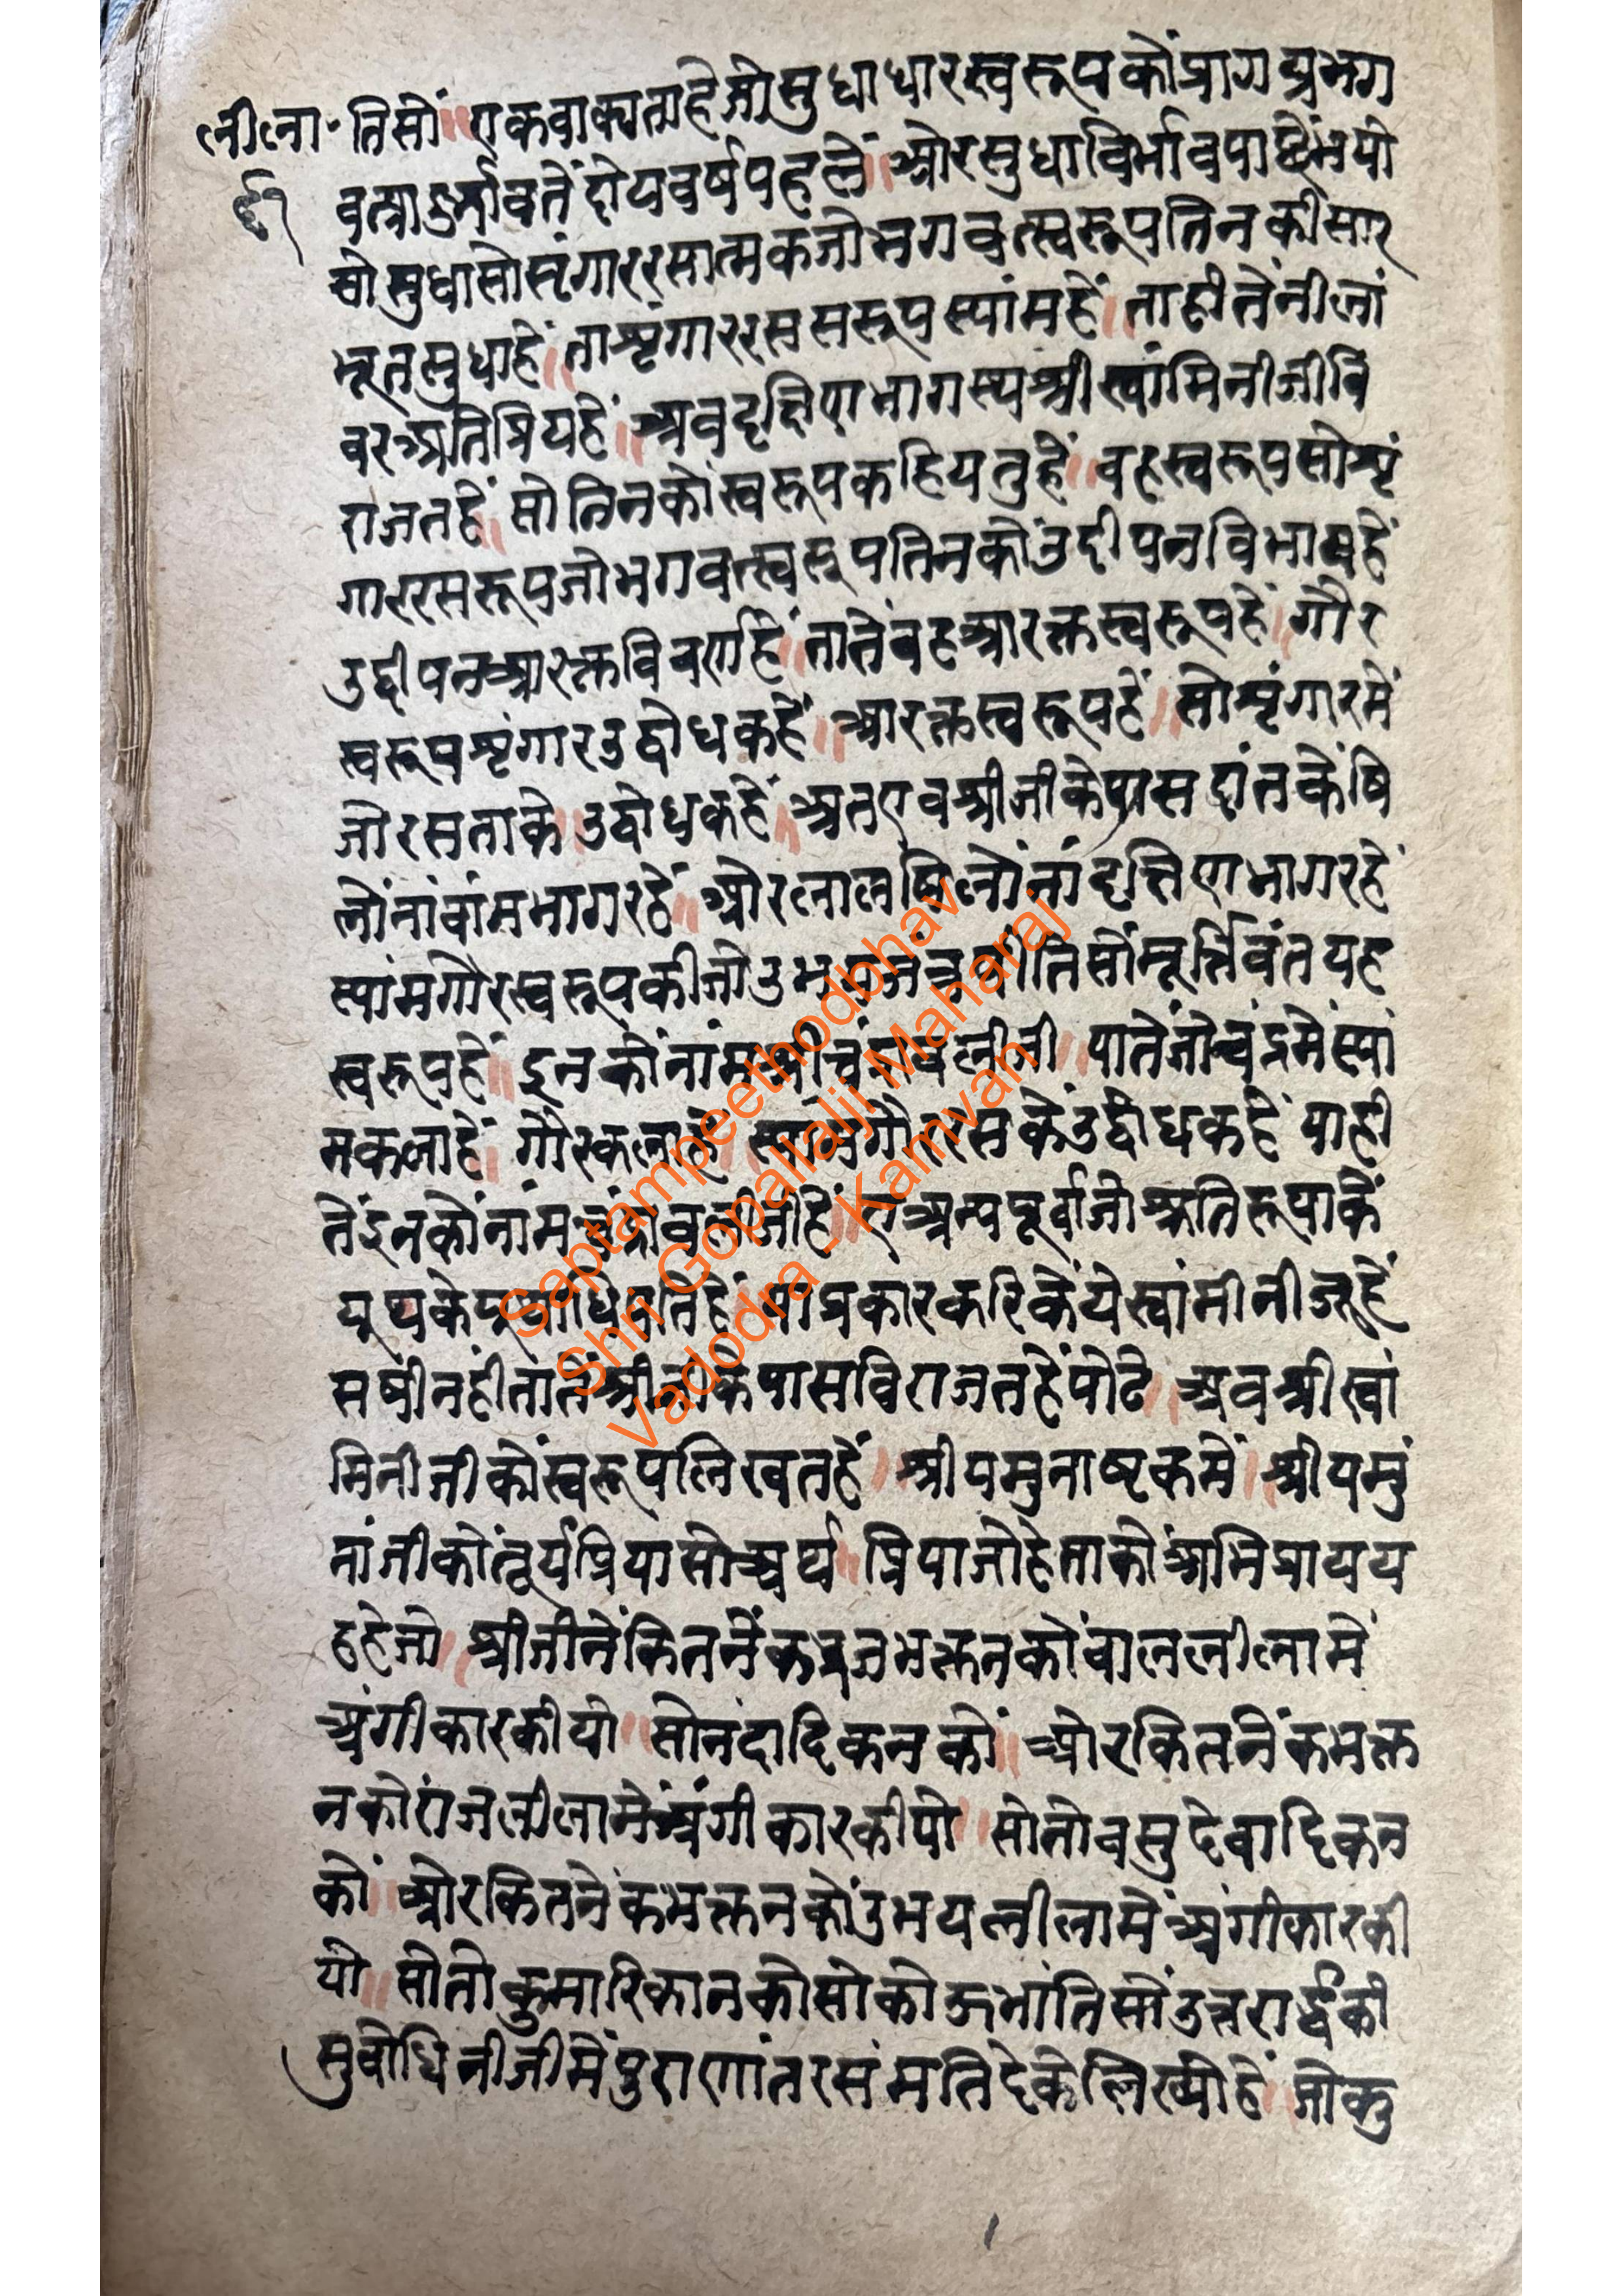 लीला
६१
तिसों॥ एकवाक्यताहेजोसुधाधारस्वरूपकोंप्रागप्रभग
वत्प्रादुर्भावतेंदोयवर्षपहलें॥ ओरसुधाविर्भावपाछेंभयो
सोसुधासोसृंगाररसात्मकजोभगवत्स्वरूपतिनकीसार
भूतसुधाहें॥ ताशृंगाररससरूपस्यांमहें॥ ताहीतेंनीलां
वरअतिप्रियहें॥ अवदक्षिणभागस्यश्रीस्वांमिनीजीवि
राजतहें॥ सोतिनकोंस्वरूपकहियतुहें॥ वहस्वरूपसोशृं
गाररसरूपजोभगवत्स्वरूपतिनकोंउदीपनविभावहें
उद्दीपनआरक्तविवराहें॥ तातेंवहआरक्तस्वरूपहें॥ गौर
स्वरूपशृंगारउद्वोधकहें॥ आरक्तस्वरूपहें॥ सोशृंगारमें
जोरसताके॥ उद्वोधकहें॥ अतएवश्रीजीकेपासदांतकेंषि
लोंनांवांमभागरहें॥ ओरलालषिलोंनांदक्षिणभागरहें
स्यांमगौरस्वरूपकीजोउभय
स्वरूपहें॥ इनकोंनांमश्रीचंद्रावलीजी॥ यातेंजोचंद्रमेंस्यां
मकलाहें॥ गौरकलाहें॥ स्यांमगौररसकेउद्वोधकहें याही
तेंइनकोंनांमचंद्रावलीजीहें॥ एअन्यपूर्वाजोश्रुतिरूपाकें
यूथकेमुख्याधिपतिहें॥ याप्रकारकरिकेंयेस्वांमीनीजूहें
सषीनहींतातेंश्रीजीकेपासविराजतहेंपोढे॥ अवश्रीस्वां
मिनीजीकोंस्वरूपलिखतहें॥ श्रीयमुनाष्टकमें॥ श्रीयमुं
नांजीकोंतूर्यप्रियासोचर्थ॥ प्रियाजोहेताकोंअभिप्रायय
हहेजो॥ श्रीजीनेंकितनेंकव्रजभक्तनकोंवाललीलामें
अंगीकारकीयो॥ सोनंदादिकनकों॥ ओरकितनेंकभक्त
नकोंराजलीलामेंअंगीकारकीयो॥ सोतोवसुदेवादिकन
कों॥ ओरकितनेंकभक्तनकोंउभयलीलामेंअंगीकारकी
यो॥ सोतोकुमारिकानकोसोकोऊभांतिसोंउत्तरार्द्धकी
सुवोधिनीजीमेंपुराणांतरसंमतिदेकेलिख्योहें॥ जोकु
Saptampeethodbhav
Shri Gopallalji Maharaj
Vadodra - Kamvan